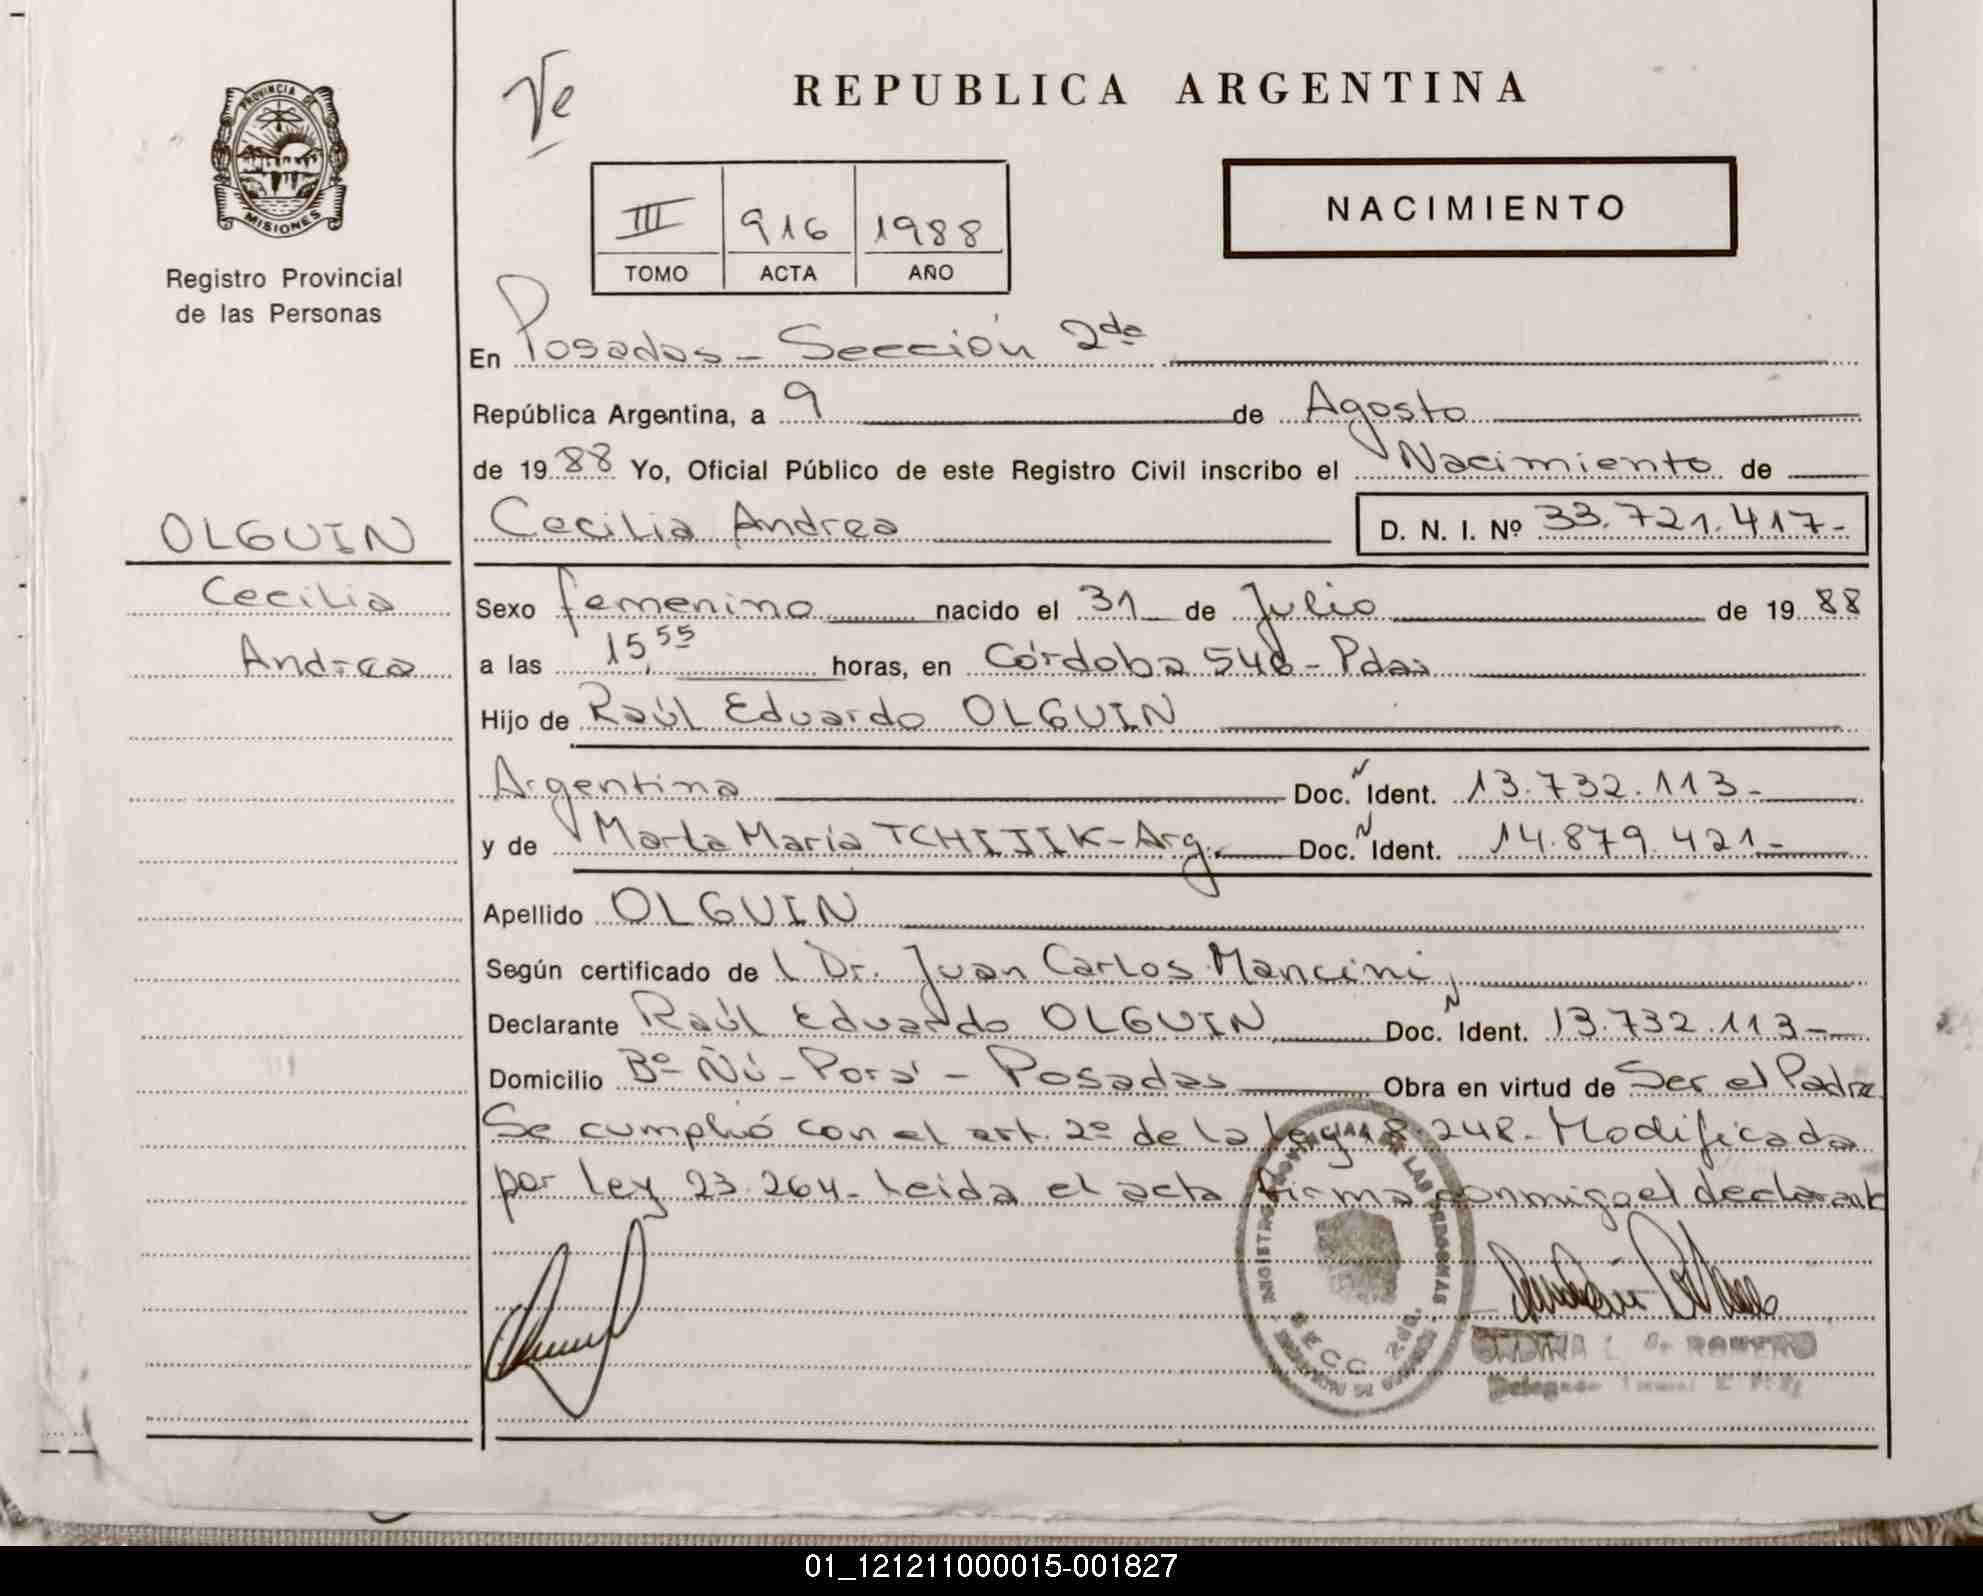 PROVINCIA DE
MISIONES
Registro Provincial
de las Personas
REPUBLICA ARGENTINA
NACIMIENTO
III 916 1988
TOMO ACTA AÑO
En Posadas - Sección 2da
República Argentina, a 9 de Agosto
de 1988 Yo, Oficial Público de este Registro Civil inscribo el Nacimiento de
Cecilia Andrea D. N. I. Nº 33.721.417-
OLGUIN
Cecilia
Andrea
Sexo femenino nacido el 31 de Julio de 1988
a las 15,55 horas, en Córdoba 546 - Pdas
Hijo de Raúl Eduardo OLGUIN
Argentina Doc. Ident. 13.732.113-
y de Marta María TCHIJIK - Arg. Doc. Ident. 14.879.421-
Apellido OLGUIN
Según certificado de l Dr. Juan Carlos Mancini
Declarante Raúl Eduardo OLGUIN Doc. Ident. 13.732.113-
Domicilio Bº Ñú - Porá - Posadas Obra en virtud de Ser el Padre
Se cumplió con el art. 2º de la Ley 18.248 - Modificada
por Ley 23.264 - Leida el acta firma conmigo el declarante
SECC. 2da.
01_121211000015-001827